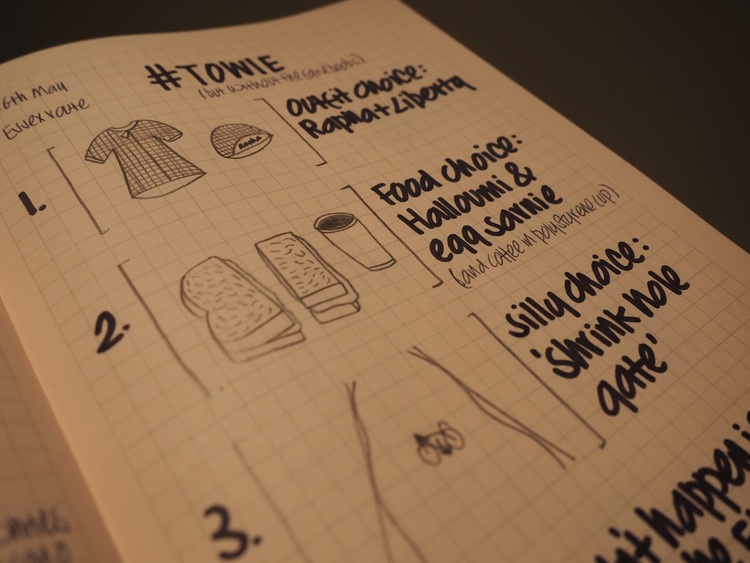 6th May
Essex route
#TOWIE
(but without the sand boots)
1.
Rapha
outfit choice:
Rapha + Liberty
2.
Food choice:
Halloumi &
egg sarnie
(and coffee in polystyrene cup)
3.
silly choice:
'shrink hole
gate'
happen